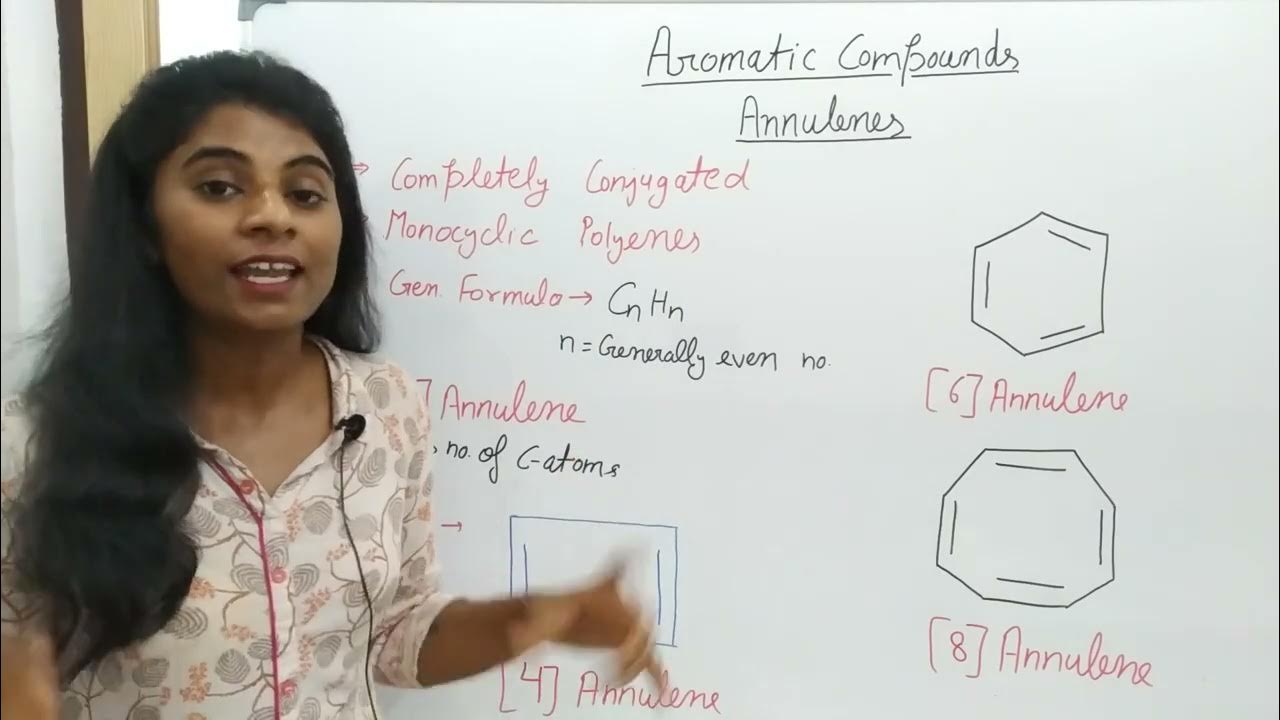 Aromatic Compounds
Annulenes
→ Completely Conjugated
Monocyclic Polyenes
Gen. Formula → CnHn
n = Generally even no.
] Annulene
no. of C-atoms
→
[4] Annulene
[6] Annulene
[8] Annulene